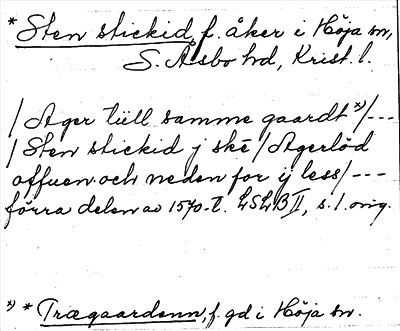 * Sten stickid, f. åker i Höja sn,
S. Åsbo hd, Krist. l.
/ Ager till samme gaardt *)/---
/ Sten stickid j skē / Agerlöd
offuen och neden for ij less/---
förra delen av 1570-t. LSLB II, s. 1. orig.
*) * Trægaardenn, f. gd i Höja sn.